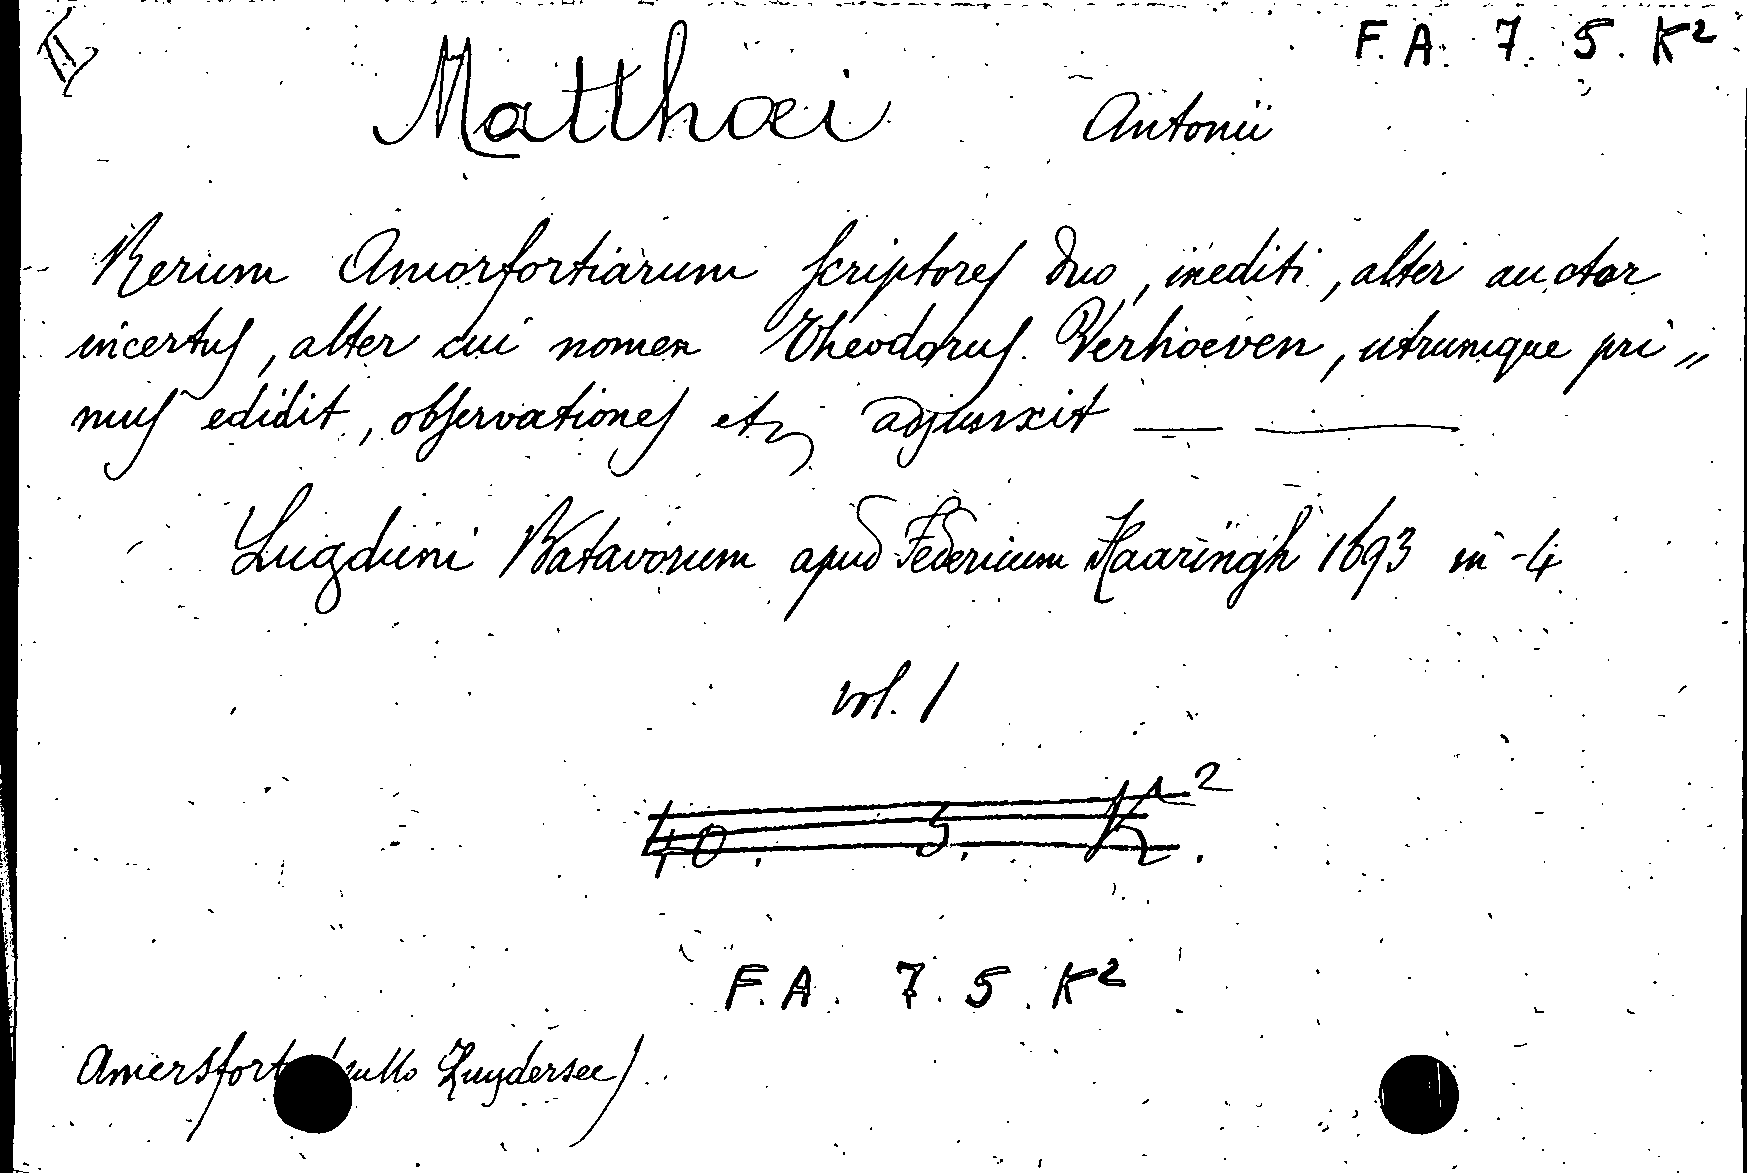 F. A. 7. 5. K²
Matthæi Antonii
Rerum Amorfortiarum scriptores duo, inediti, alter auctor
incertus, alter cui nomen Theodorus Verhoeven, utrumque pri„
mus edidit, observationes etz adjunxit
Lugduni Batavorum apud Federicum Haaringh 1693 in-4
vol. 1
40. 5. K².
F. A. 7. 5. K²
Amersfort sullo Zuydersee)